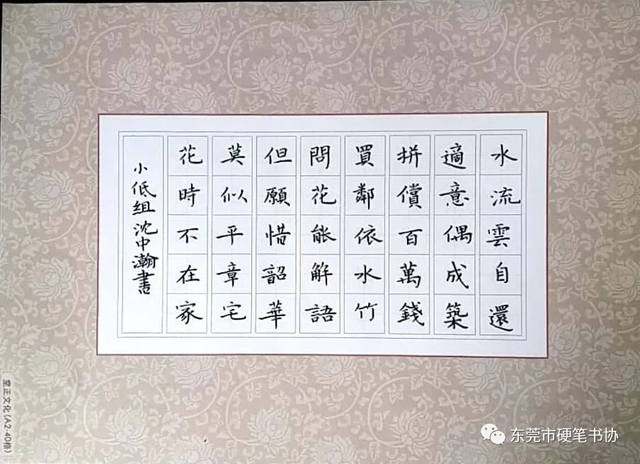 水流雲自還
適意偶成築
拼償百萬錢
買鄰依水竹
問花能解語
但願惜韶華
莫似平章宅
花時不在家
小低组沈中瀚書
堂正文化(A2-40格)
东莞市硬笔书协